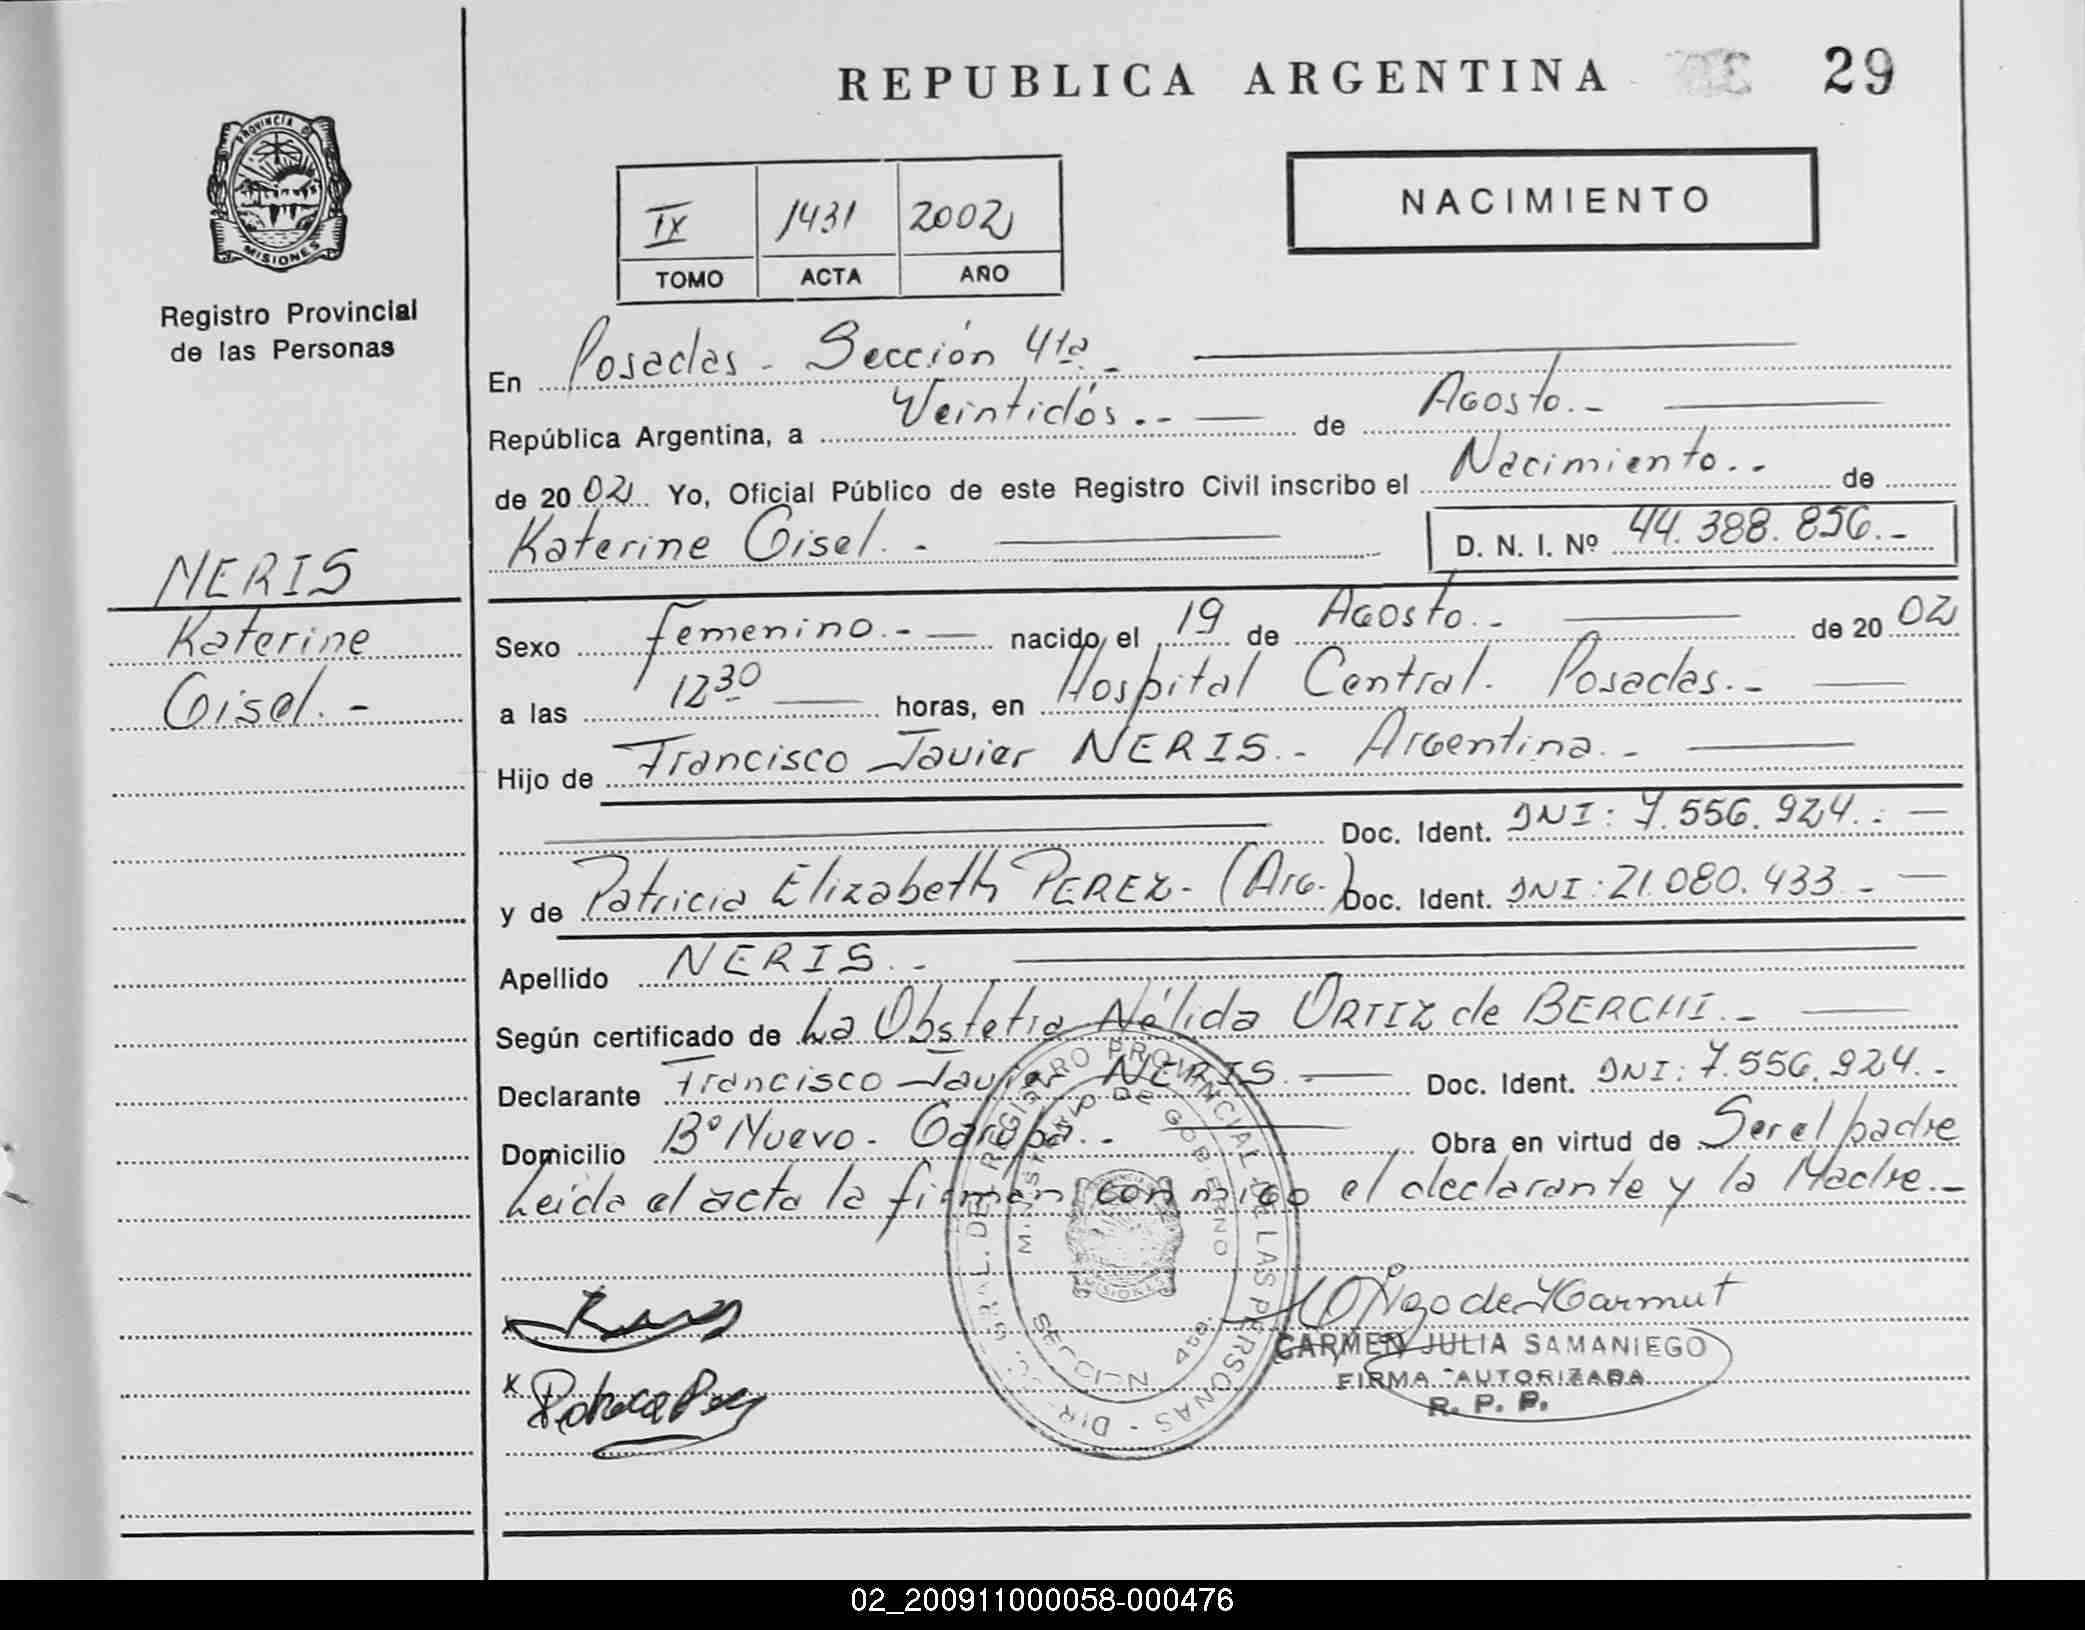 REPUBLICA ARGENTINA 29
PROVINCIA DE MISIONES
Registro Provincial
de las Personas
NACIMIENTO
IX 1431 2002
TOMO ACTA AÑO
En Posadas - Sección 4ta.-
República Argentina, a Veintidós.- de Agosto.-
de 2002 Yo, Oficial Público de este Registro Civil inscribo el Nacimiento.- de
Katerine Gisel.- D. N. I. Nº 44.388.856.-
NERIS
Katerine
Gisel.-
Sexo femenino.- nacido, el 19 de Agosto.- de 2002
a las 12 30 horas, en Hospital Central. Posadas.-
Hijo de Francisco Javier NERIS.- Argentina.-
Doc. Ident. DNI: 7.556.924.-
y de Patricia Elizabeth PEREZ- (Arg.) Doc. Ident. DNI: 21.080.433.-
Apellido NERIS.-
Según certificado de La Obstetra Nélida ORTIZ de BERCHI.-
Declarante Francisco Javier NERIS.- Doc. Ident. DNI: 7.556.924.-
Domicilio Bº Nuevo - Garupá.- Obra en virtud de Ser el padre
Leida el acta la firman conmigo el declarante y la Madre.-
DIR. GRAL. DEL REGISTRO PROVINCIAL DE LAS PERSONAS
MINISTERIO DE GOBIERNO
SECCION 4ta.
CARMEN JULIA SAMANIEGO
FIRMA AUTORIZADA
R. P. P.
x Patricia Perez
02_200911000058-000476